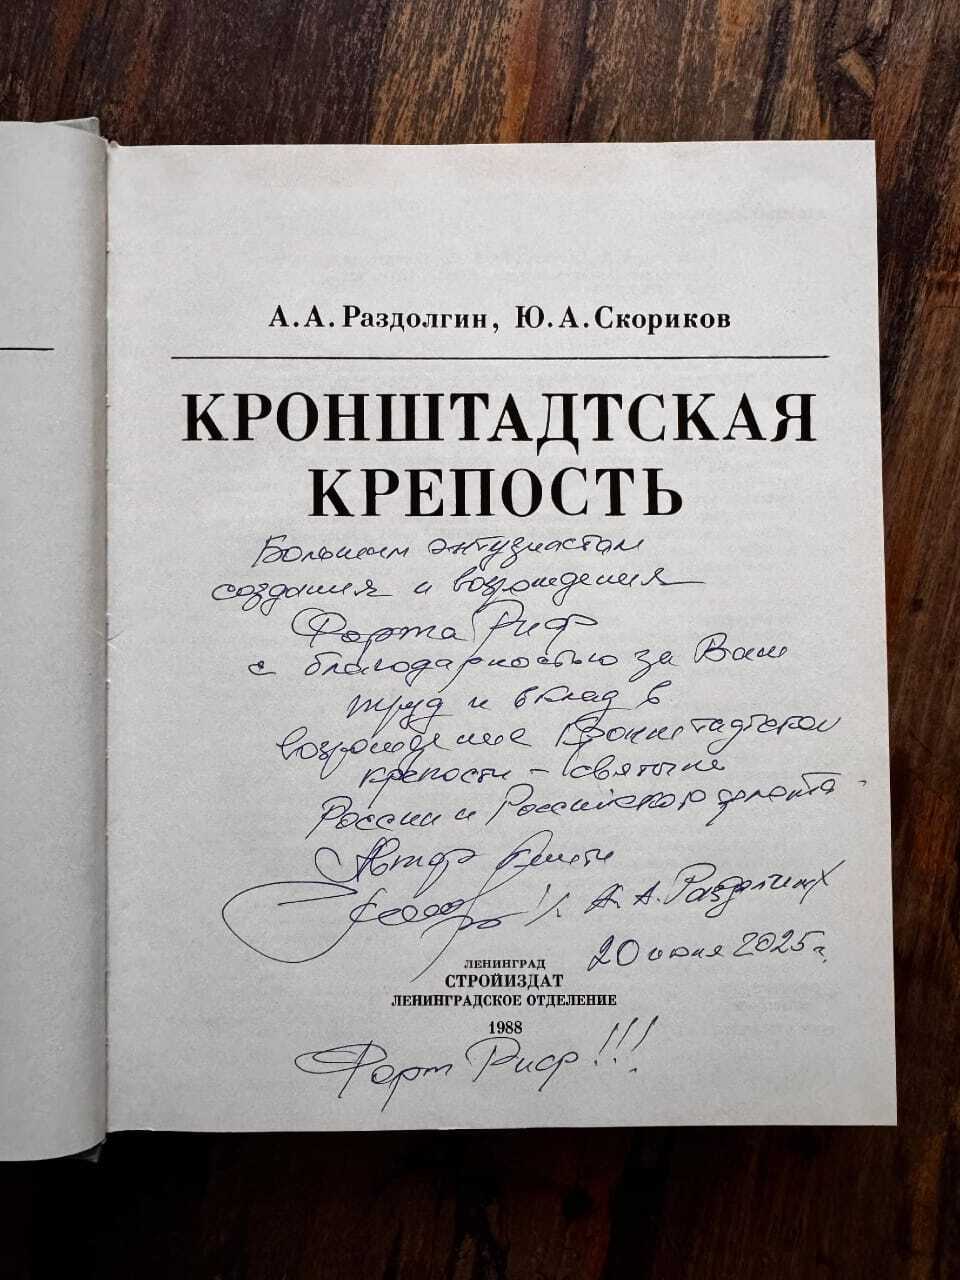 А. А. Раздолгин, Ю. А. Скориков
КРОНШТАДТСКАЯ
КРЕПОСТЬ
Большим энтузиастам
создания и возрождения
Форта Риф
с благодарностью за Ваш
труд и вклад в
возрождение Кронштадтской
крепости – святыни
России и Российского флота.
Автор книги
/А. А. Раздолгин/
20 июня 2025 г.
ЛЕНИНГРАД
СТРОЙИЗДАТ
ЛЕНИНГРАДСКОЕ ОТДЕЛЕНИЕ
1988
Форт Риф!!!